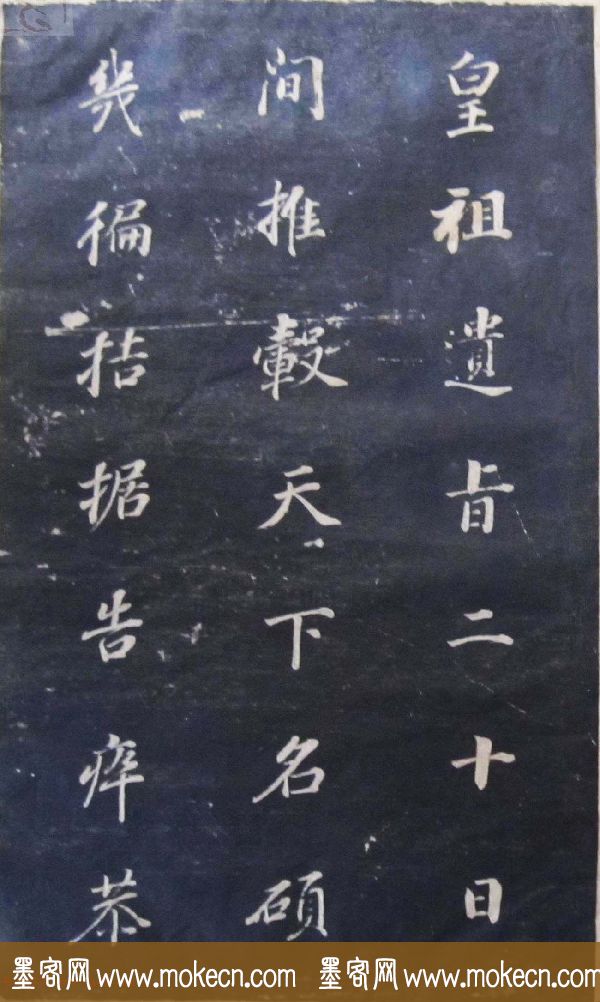 皇祖遺旨二十日
间推轂天下名碩
幾徧拮据告瘁恭
墨客网 www.mokecn.com 墨客网 www.mokecn.com